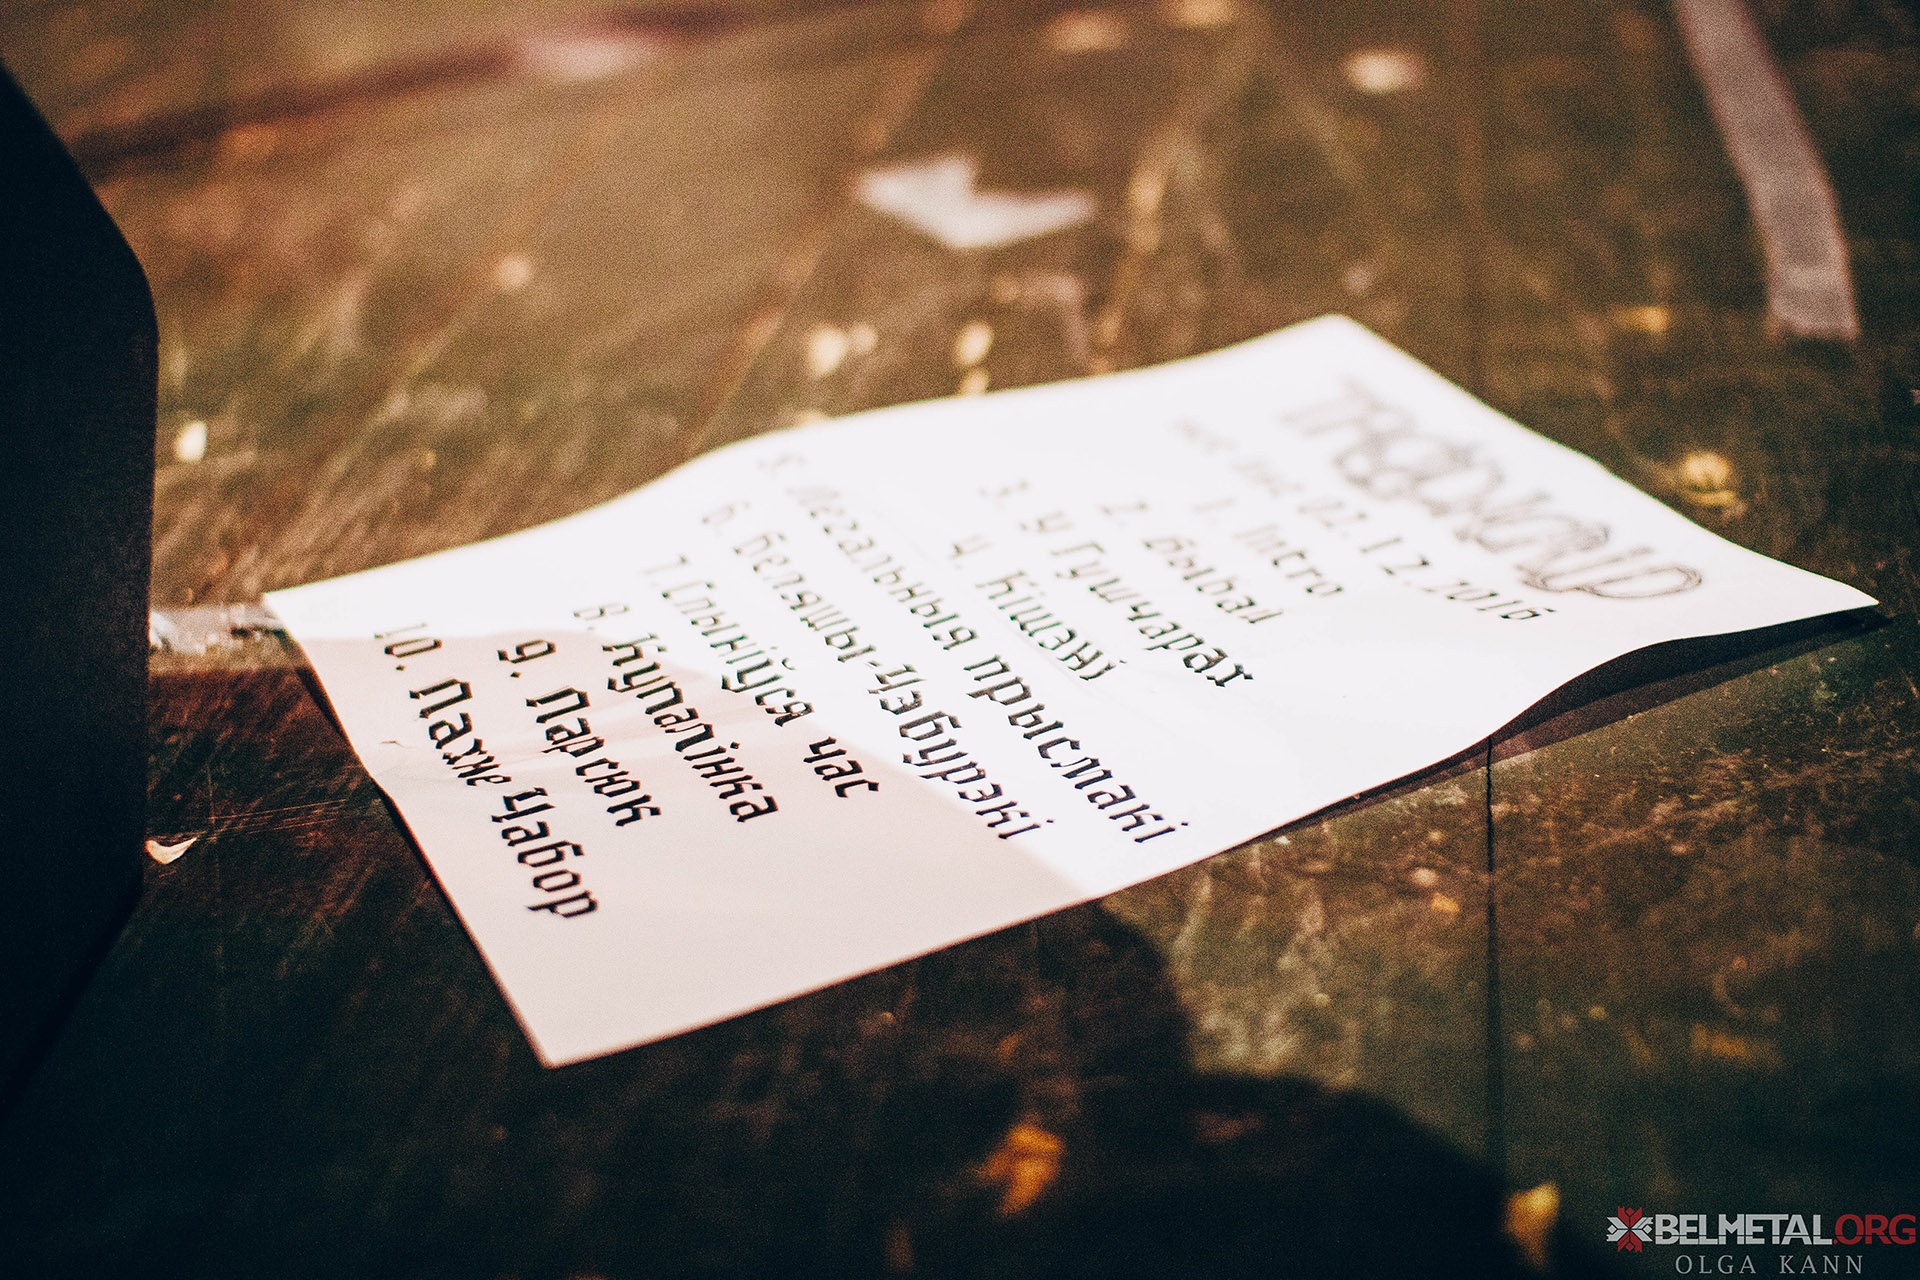 02.12.2016
1. Intro
2. Бывай
3. У Гушчарах
4. Кішэні
5. Легальныя прысмакі
6. Беляшы-Чэбурэкі
7. Спыніўся час
8. Купалінка
9. Парсюк
10. Пахне Чабор
BELMETAL.ORG
OLGA KANN